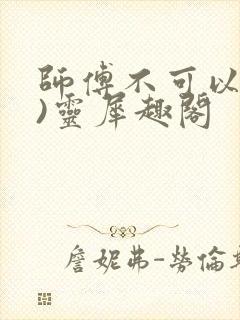 師傅不可以
)靈犀趣閣
詹妮弗-勞倫